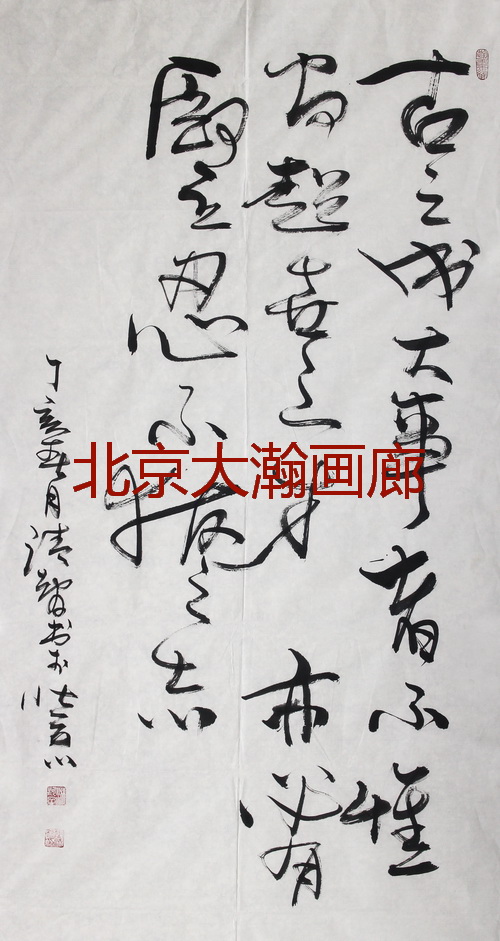 古之成大事者不惟
有超世之才亦必有
堅忍不拔之志
丁亥春月清书於
北京大瀚画廊